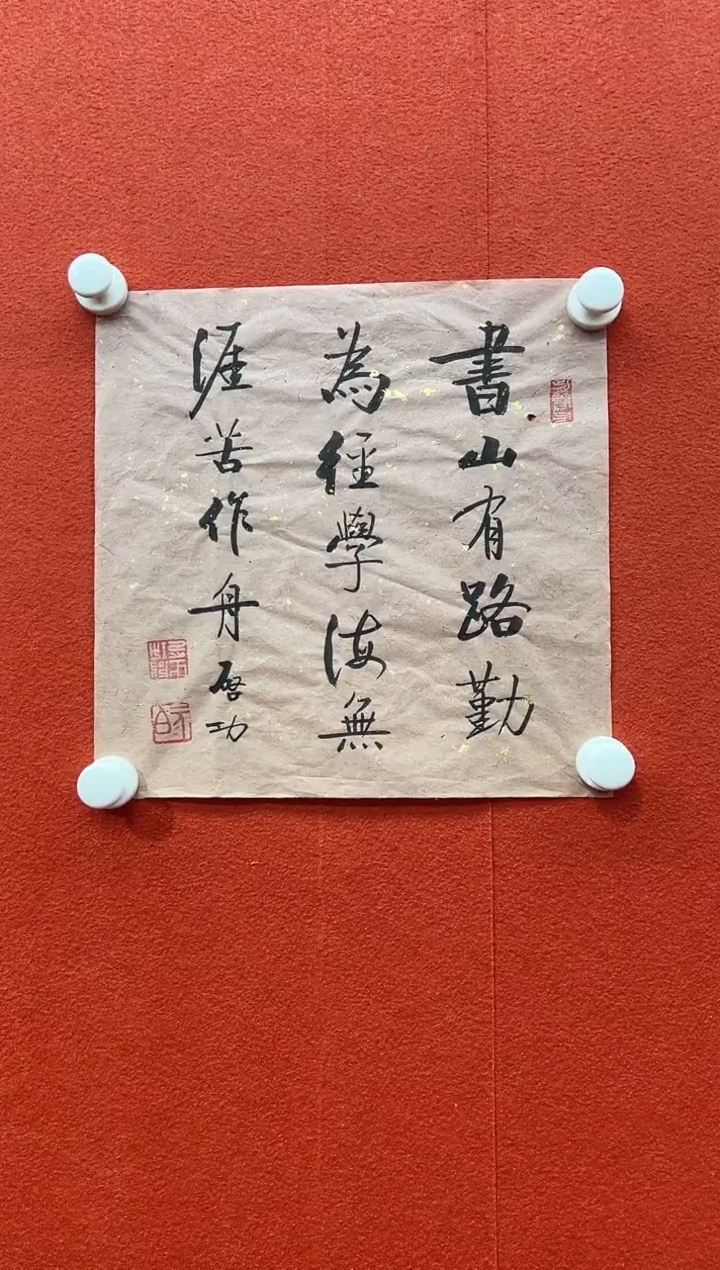 書山有路勤
為徑學海無
涯苦作舟 啓功